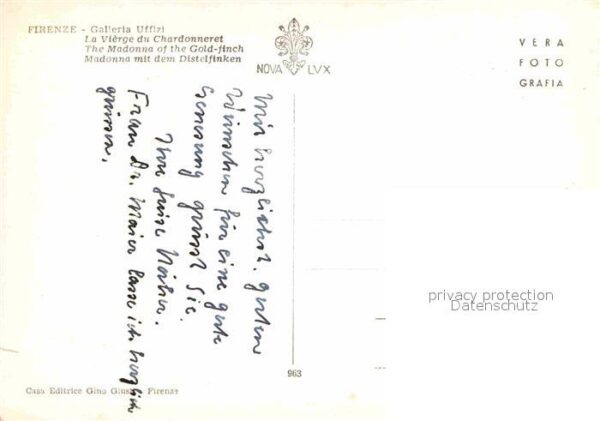 FIRENZE - Galleria Uffizi
La Vièrge du Chardonneret
The Madonna of the Gold-finch
Madonna mit dem Distelfinken
NOVA LVX
VERA
FOTO
GRAFIA
Mit herzlichst. guten
Wünschen für eine gute
Genesung grüsst Sie
Ihre
Frau Dr. Maier lasse ich herzlich
grüssen.
963
Casa Editrice Gino Giusti Firenze
privacy protection
Datenschutz